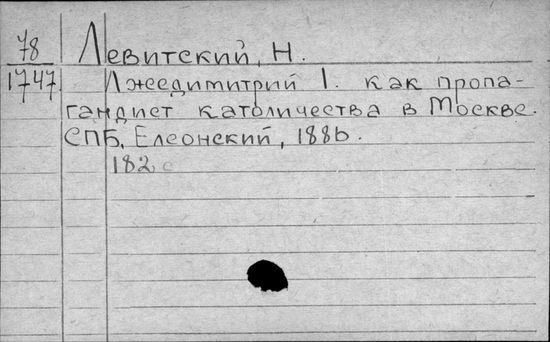 78 Левитский, Н.
1747 Лжедимитрий I. как пропа-
гандист католичества в Москве.
СПБ, Елеонский, 1886.
182 с